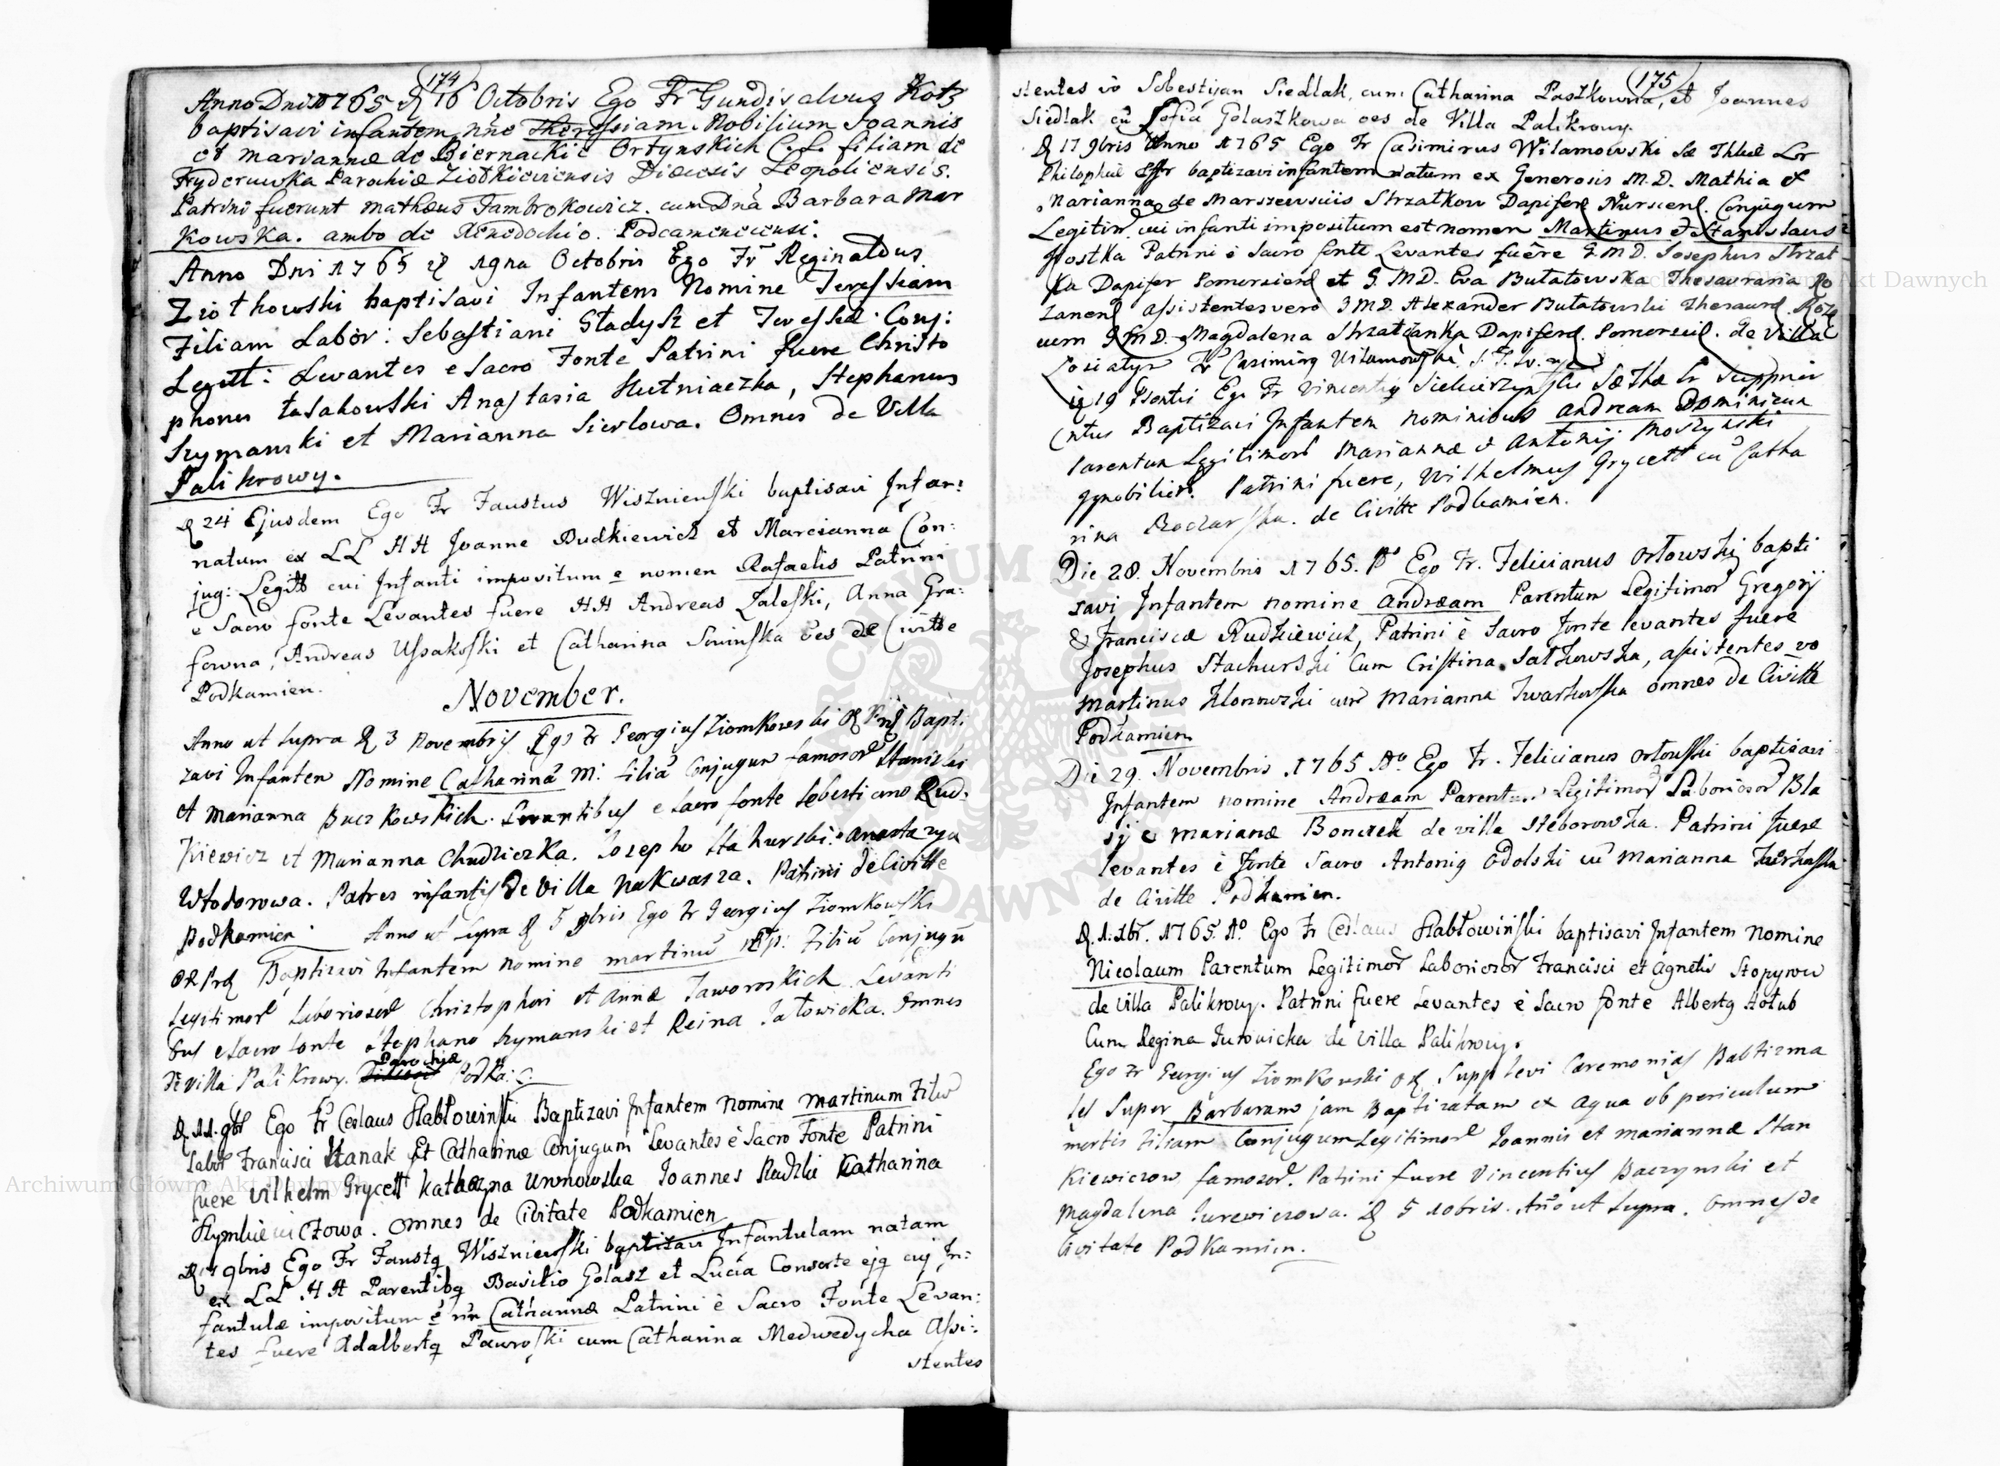 174
Anno Dni 1765 D 16 Octobris Ego Fr Gundisalvus Kotz
baptisavi infantem nne Theressiam Nobilium Joannis
et mariannæ de Biernackie Ortynskich C. L. filiam de
Fryderuwka Parochiæ Ziołkieviensis Diæcesis Leopoliensis.
Patrini fuerunt mathæus Jambrokowicz. cum Dna Barbara Mar
kowska. ambo de Xenodochio. Podcamenecensi.
Anno Dni 1765 D 19na Octobris Ego Fr Reginaldus
Ziołkowski baptisavi Infantem Nomine Teressiam
Filiam Labor: Sebastiani Gładysz et Teressæ Conj:
Legitt: Levantes e Sacro Fonte Patrini fuere Christo
phorus Łasakowski Anastasia Hutniaczka, Stephanus
Szymanski et Marianna Sierlowa. Omnes de Villa
Palikrowy.
D 24 Ejusdem Ego Fr Faustus Wiszniewski baptisavi Infan:
natum ex LL HH Joanne Dudkiewicz et Marcianna Con:
jug: Legitt cui Infanti impositum e nomen Rafaelis Patrini
e Sacro fonte Levantes fuere HH Andreas Zaleski, Anna Gra:
fowna, Andreas Ussakoski et Catharina Sowinska oes de Civitte
Podkamien.
November.
Anno ut supra D 3 Novembris Ego Fr Georgius Ziomkowski Bapti
zavi Infantem Nomine Catharina M: filia Conjugum famosor Stanislai
et Marianna Buczkowskich. Levantibus e sacro fonte Sebestiano Rud:
kiewicz et Marianna Chudziczka. Josepho Stahurski: anastazya
Włodorowa. Patres infantis De Villa Nakwasza. Patrini de Civitte
Podkamien. Anno ut supra D 5 9bris Ego Fr Georgius Ziomkowski
Baptizavi Infantem nomine martinu Filiu Conjugu
Legitimor Laboriosor Christophori et Annæ Jaworskich Levanti
bus e sacro fonte Stephano Szymanski et Reina Jałowicka. Omnes
De Villa Palikrowy. Parochiæ Podka:
D. 11. 9br Ego Fr Ceslaus Habłowinski Baptizavi Infantem nomine martinum Filiu
Labor Francisci Hanak et Catharinæ Conjugum Levantes è Sacro Fonte Patrini
fuere Vilhelm Grycett Katharyna Uronowska Joannes Rudzki Katharina
Szymkiewiczowa. Omnes de Civitate Podkamien
9bris Ego Fr Faustq Wiszniewski baptizavi Infantulam natam
ex LL HH Parentibq Basilio Gołasz et Lucia Consorte ejq cuj In:
fantulæ impositum é nn Catharinæ Patrini è Sacro Fonte Levan:
tes fuere Adalbertq Pawroski cum Catharina Medwedycha Assi:
stentes
175
stentes vo Sebestyan Siedlak. cum Catharina Paszkowna, et Joannes
Siedlak cu Sofia Golaszkowa oes de Villa Palikrowy.
D 17 9bris Anno 1765 Ego Fr Casimirus Wilamowski Sæ Thlæ Lr
Philophiæ baptizavi infantem natum ex Generosis M. D. Mathia et
Marianna de Marszewskiis Strzałkow Dapifer Nurscien. Conjugum
Legitim. cui infanti impositum est nomen Martinus et Stanislaus
Kostka Patrini è Sacro fonte Levantes fuêre G MD. Josephus Strzał
ka Dapifer Pomeraien et G. MD. Eva Bułatowska Thesauraria Ro
zanen assistentes vero G MD. Alexander Bułatowski Thesaur. Roza
nen G MD. Magdalena Strzałcanka Dapifer. Pomeraien. de Villa
Łosiatyn Fr Casimirq Wilamowski. S. T. Lr.
D 19 Præsentis Ego Fr Vincentiq Sielwirzynski SæThæ Lr Supprior
Baptizavi Infantem nominibus Andream Dominicum
Parentum Legitimor Mariannæ et Antonij Moszynski
Ignobilior. Patrini fuere, Wilhelmus Grycett cu Catha
rina de Civitte Podkamien.
Die 28. Novembris 1765. Ao Ego Fr. Felicianus Orłowski bapti
savi Infantem nomine Andræam Parentum Legitimor Gregorij
& Franciscæ Rudziewich, Patrini è Sacro fonte levantes fuere
Josephus Stachurski Cum Cristina Sałkowska, assistentes vo
Martinus Klonowski cum Marianna Twarkowska omnes de Civitte
Podkamien
Die 29. Novembris 1765 Ao Ego Fr. Felicianus Orłowski baptisavi
Infantem nomine Andræam Parentum Legitimor Laboriosor Bla
sij e marianæ Bonczek de villa Steborowka. Patrini fuere
levantes è fonte Sacro Antoniq Odolski cu Marianna
de Civitte Podkamien.
D. 1. Xbr. 1765. Ao Ego Fr Ceslaus Habłowiński baptisavi Infantem Nomine
Nicolaum Parentum Legitimor Laboriosor Francisci et Agnetis Stopyrow
de Villa Palikrowy. Patrini fuere Levantes è Sacro fonte Albertq Hołub
Cum Regina Jurowicka de Villa Palikrowy.
Ego Fr Georgius Ziomkowski Supplevi Cæremonias Babtizma
les Super Barbaram jam Baptizatam ex aqua ob periculum
mortis Filiam Conjugum Legitimor Joannis et mariannæ Stan
kiewiczow famosor. Patrini fuere Vincentius Baczynski et
Magdalena Jurewiczowa. D 5 10bris. Ano ut supra. Omnes de
Civitate Podkamien.
Archiwum Główne Akt Dawnych
Archiwum Główne Akt Dawnych
ARCHIWUM GŁÓWNE AKT DAWNYCH